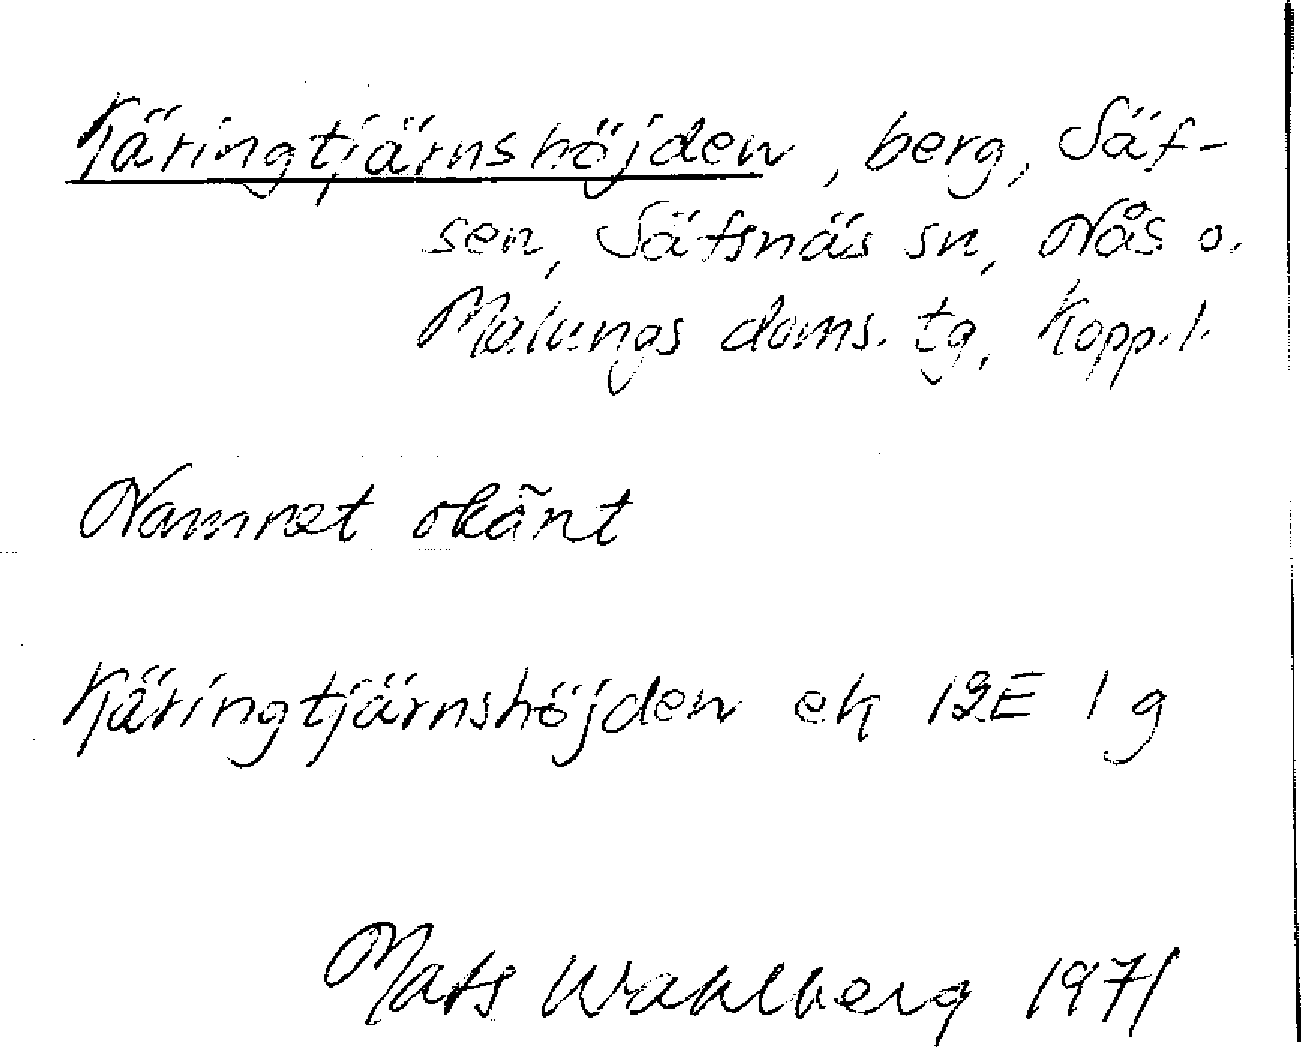 Käringtjärnshöjden, berg, Säf-
sen, Säfsnäs sn, Nås o.
Malungs doms. tg, Kopp. l.
Namnet okänt
Käringtjärnshöjden ek 12E 1 g
Mats Wahlberg 1971